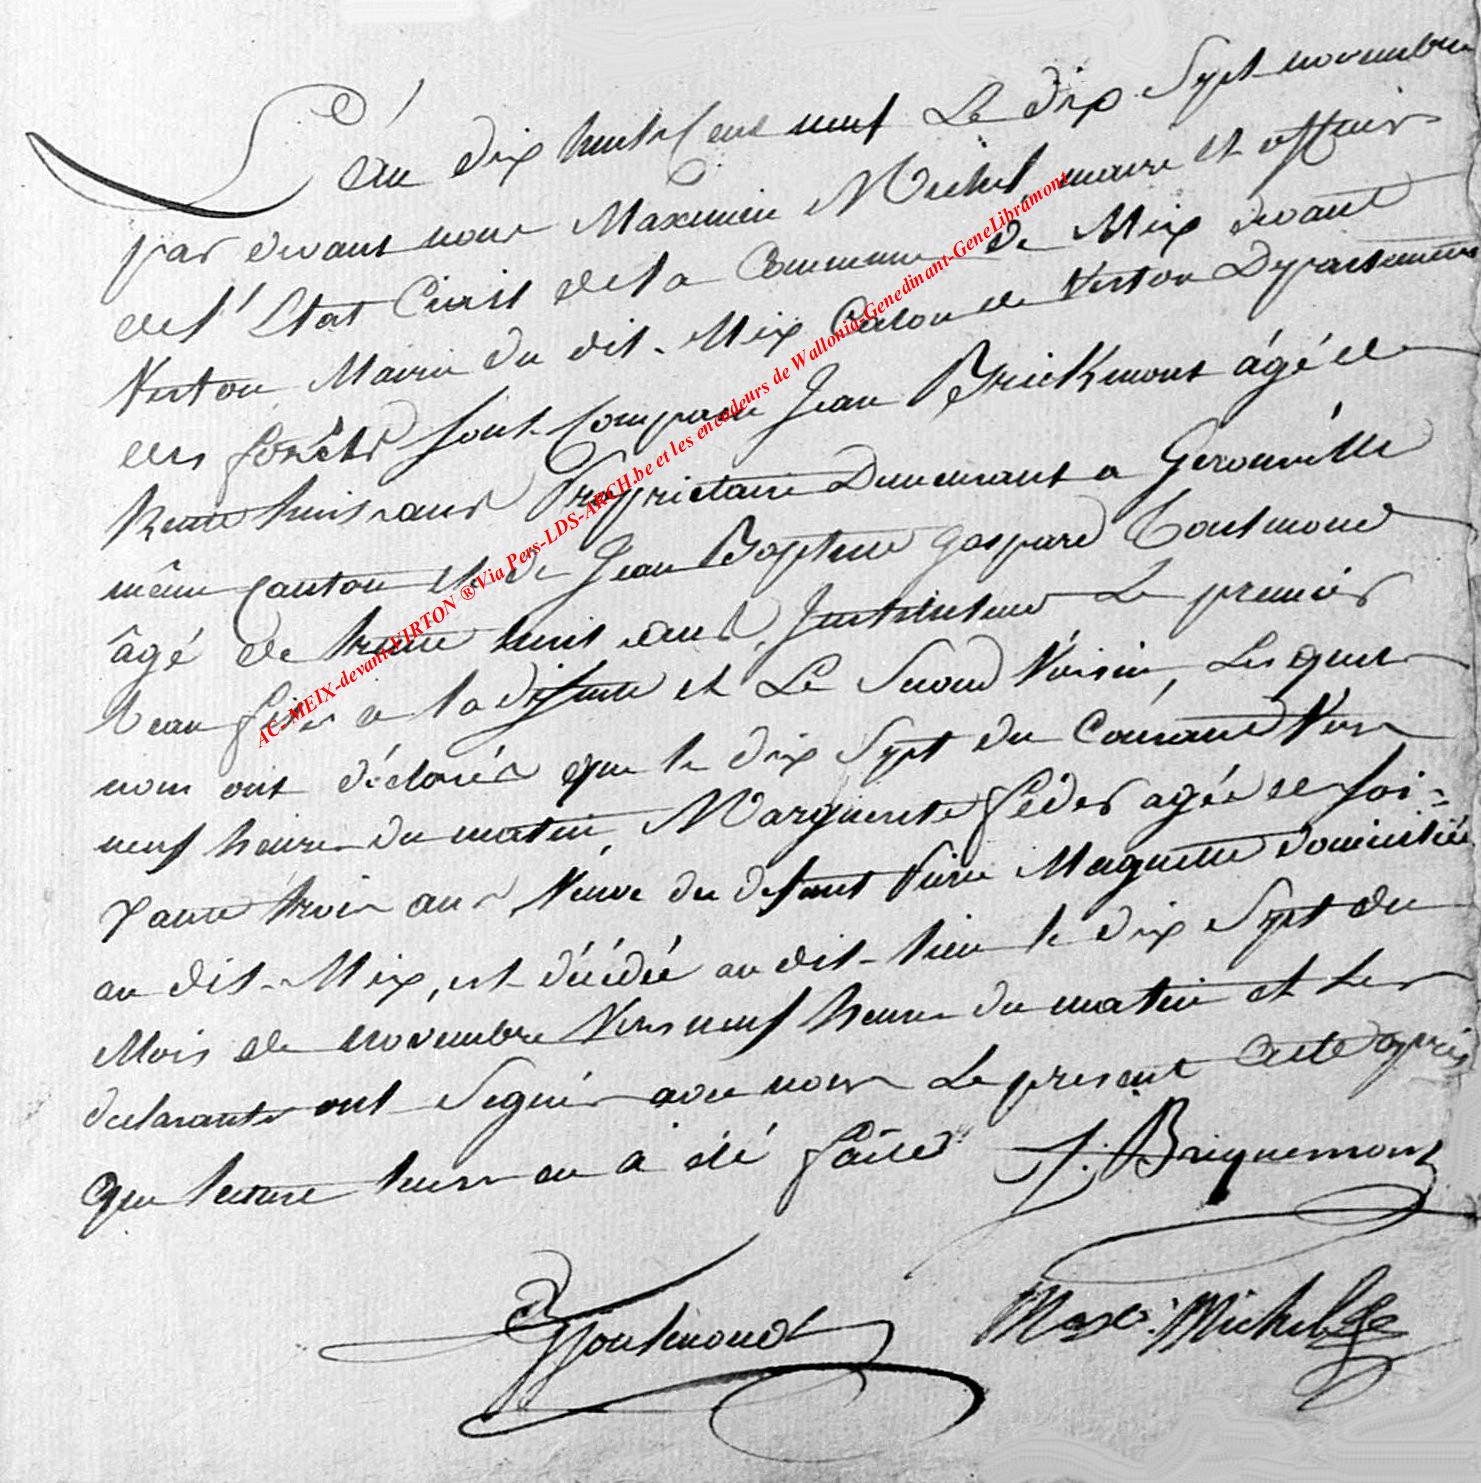 L'án dix huit Cent neuf Le dix Sept novembre
par devant nous Maximin Michel, maire et officier
de l'Etat Civil de la Commune de Meix devant
Virton Mairie du dit-Meix Canton de Virton Departement
des forêts sont Comparu Jean Brickmont âgé de
trente huit ans Proprietaire Demeurant a Gerouville
même Canton et de Jean Baptiste Gaspard Toutmond
âgé de trente huit ans, Instituteur Le premier
beau fils a la défunte et Le Second Voisin, Lesquels
nous ont déclarés que le dix Sept du Courant Vers
neuf heures du matin, Marguerite féder agée de soi-
xante trois ans Veuve du defunt Pierre Maguette domiciliée
au dit-Meix, est décédée au dit-lieu le dix Sept du
Mois de novembre Vers neuf heures du matin et Les
declarants ont Signés avec nous Le present Acte après
que lecture leurs en à été faites J. Briquemont
Toutmond Max: Michel
AC-MEIX-devant-VIRTON ® Via Pers-LDS-ARCH.be et les encodeurs de Wallonia-Genedinant-GeneLibramont